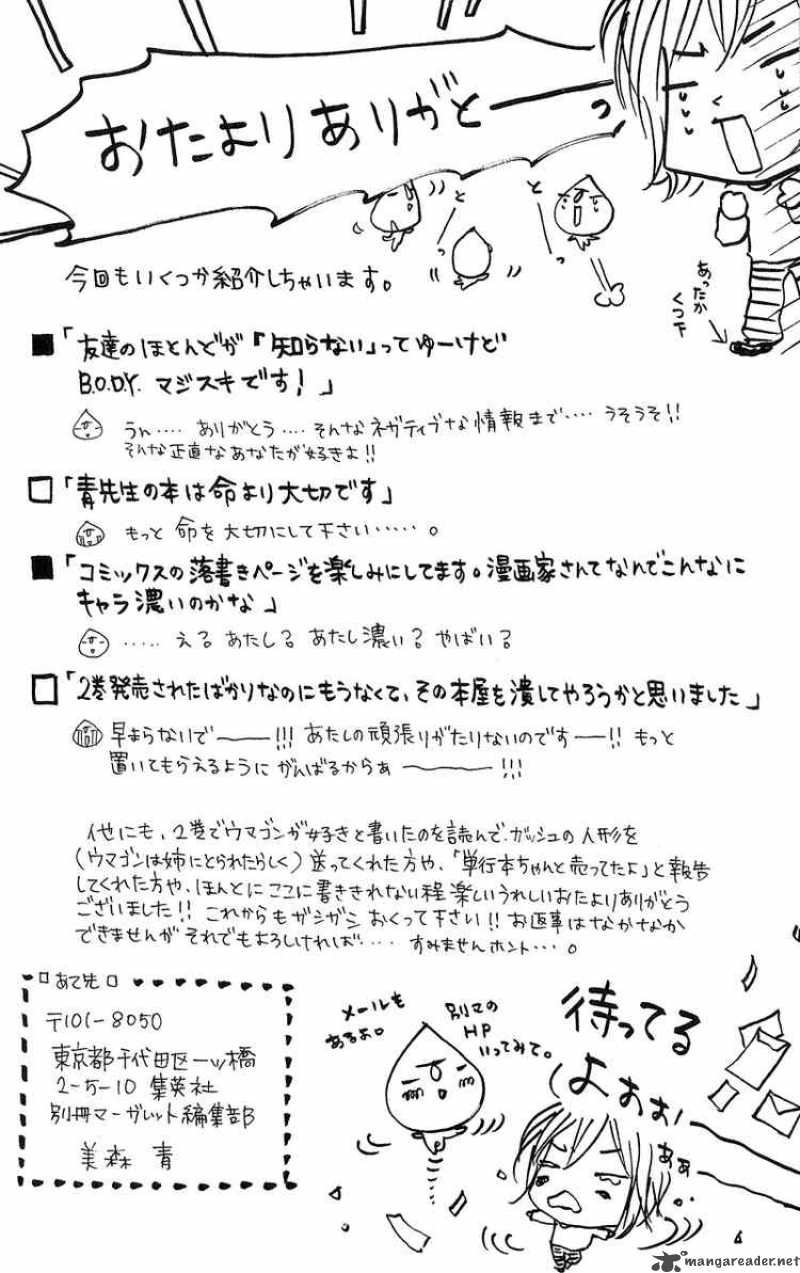 おたよりありがとーーっ
と
と
っ
あったか
くつ下
今回もいくつか紹介しちゃいます。
■「友達のほとんどが『知らない」ってゆーけど
B.O.D.Y. マジスキです！」
うん‥‥ ありがとう‥‥ そんなネガティブな情報まで‥‥ うそうそ!!
そんな正直なあなたが好きよ!!
□「青先生の本は命より大切です」
もっと 命を大切にして下さい‥‥‥。
■「コミックスの落書きページを楽しみにしてます。漫画家さんてなんでこんなに
キャラ濃いのかな」
‥‥‥ え？ あたし？ あたし濃い？ やばい？
□「2巻発売されたばかりなのにもうなくて、その本屋を潰してやろうかと思いました」
早まらないで〜〜!!! あたしの頑張りがたりないのですー!! もっと
置いてもらえるように がんばるからぁ 〜〜!!!
他にも、2巻でウマゴンが好きと書いたのを読んで、ガッシュの人形を
(ウマゴンは姉にとられたらしく) 送ってくれた方や、「単行本ちゃんと売ってたよ」と報告
してくれた方や、ほんとにここに書ききれない程楽しいうれしいおたよりありがとう
ございました!! これからもガシガシ おくって下さい!! お返事はなかなか
できませんが それでもよろしければ‥‥ すみませんホント‥‥。
□あて先□
〒101-8050
東京都千代田区一ツ橋
2-5-10 集英社
別冊マーガレット編集部
美森 青
メールも
あるよ。
別マの
HP
いってみて。
待ってる
よぉぉぉ
ぁぁ
6
mangareader.net